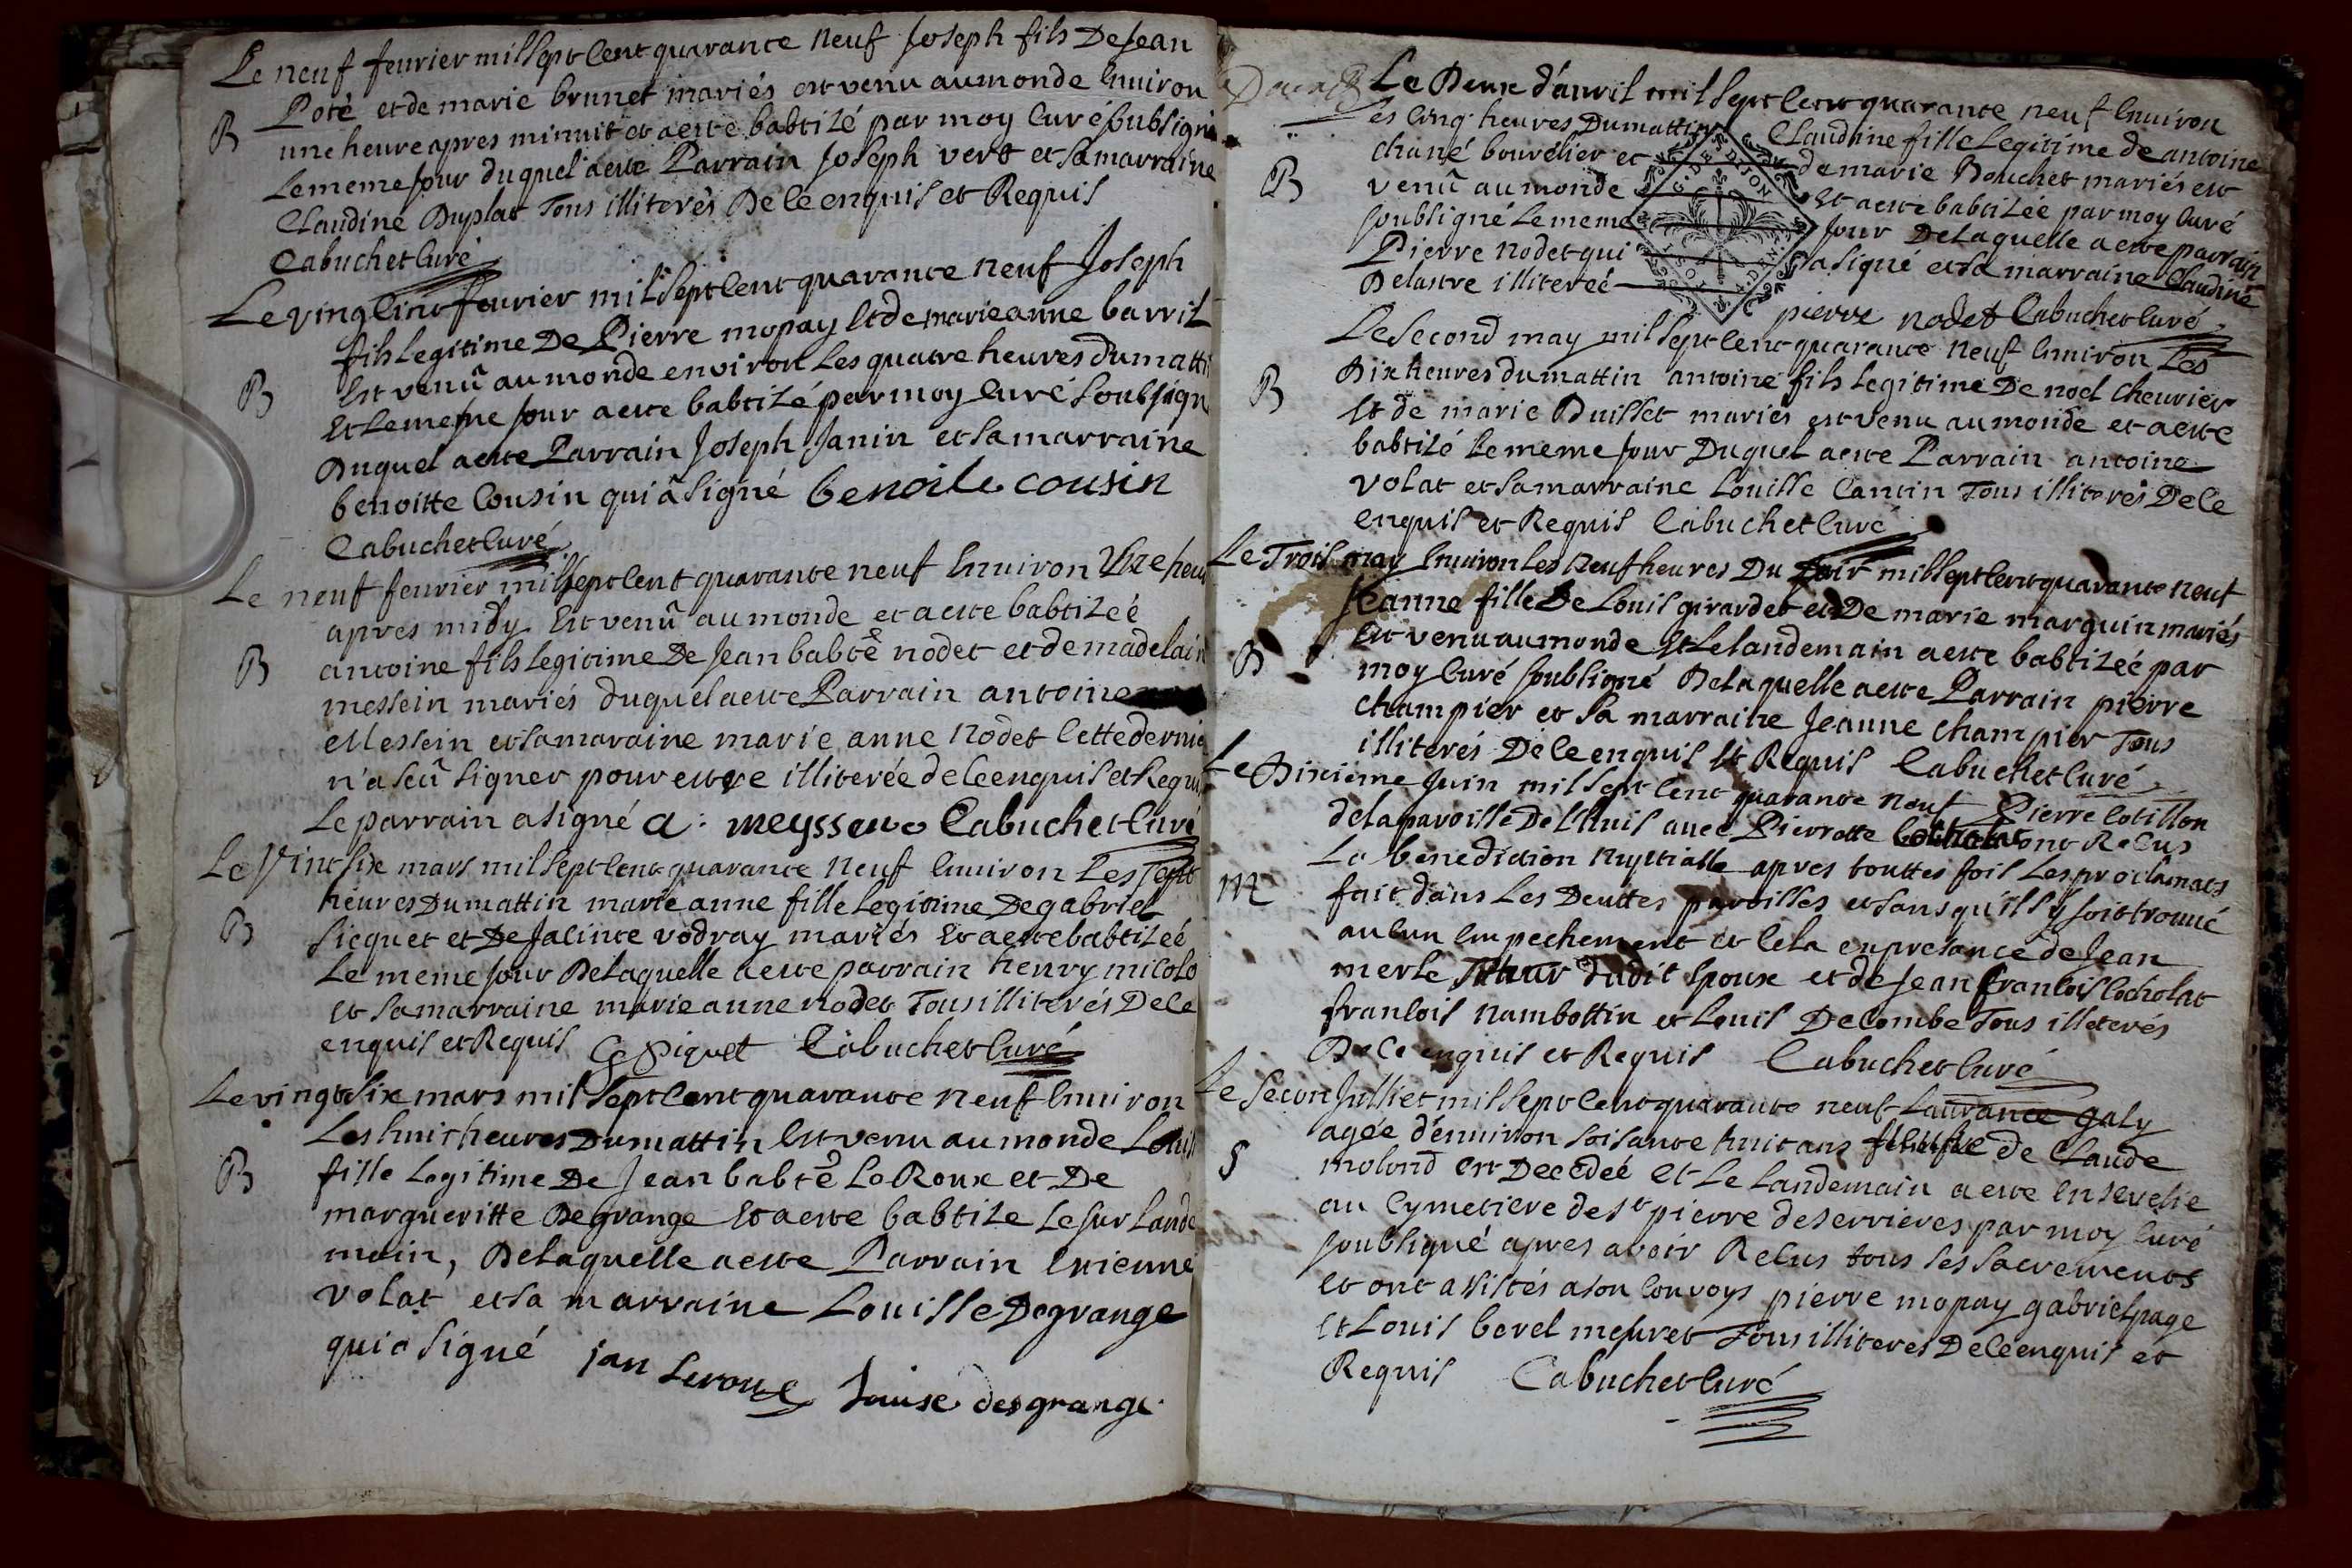 Le neuf feurier mil sept cent quarante neuf Joseph fils De Jean
Poté et de marie brunet mariés est venu au monde Enuiron
B
une heure apres minuit et a esté babtizé par moy curé soubsigné
le meme jour duquel a esté Parrain Joseph vert et sa marraine
Claudine Duplat Tous illiterés De ce enquis et Requis
Cabuchet Curé
Le vingt cinq feurier mil sept cent quarante neuf Joseph
fils legitime De Pierre mopay et de marie anne barril
B
Est venû au monde environ les quatre heures du matti
Et le meme jour a esté babtizé par moy curé soubsign
Duquel a esté Parrain Joseph Janin et sa marraine
benoitte Cousin qui a signé benoite cousin
Cabuchet Curé
Le neuf feurier mil sept cent quarante neuf Enuiron Une heu
apres midy Est venû au monde et a esté babtizeé
B
antoine fils legitime De Jean babte nodet et de madelain
messein mariés duquel a esté Parrain antoine
Messein et sa maraine marie anne nodet Cette dernie
n'a sceû signer pour estre illiterée de ce enquis et Requi
Le parrain a signé a: meyssein Cabuchet Curé
Le Vint six mars mil sept cent quarante neuf Enuiron Les sept
heures Du mattin marie anne fille legitime De gabriel
B
sicquet et De Jacinte vodray mariés Et a esté babtizeé
Le meme jour De laquelle a esté parrain henry micolo
et sa marraine marie anne nodet Tous illiterés De ce
enquis et Requis G Siquet Cabuchet Curé
Le vingt six mars mil sept cent quarante neuf Enuiron
Les huit heures Du mattin Est venu au monde Louis
B
fille legitime De Jean babte Le Roux et De
margueritte Degrange Et a esté babtize le sur lande
main, De laquelle a esté Parrain Etienne
volat et sa marraine Louisse Degrange
qui a signé jan Leroux Louise desgrange
Le Deux d'auril mil sept cent quarante neuf Enuiron
les cinq heures Du mattin Claudine fille Legitime de antoine
chané bourélier et de marie Bouchet mariés est
B
venû au monde Et a esté babtizée par moy curé
soubsigné Le meme jour De Laquelle a esté parrain
Pierre nodet qui a signé et sa marraine Claudine
Delastre illitereé
G. DE DIJON
pierre nodet Cabuchet Curé
Le second may mil sept cent quarante neuf Enuiron Les
Dix heures du mattin antoine fils legitime De noel cheurier
B
Et de marie Buisset mariés est venu au monde et a esté
babtizé Le meme jour Duquel a esté Parrain antoine
volat et sa marraine Louisse Cantin Tous illiterés De ce
enquis et Requis Cabuchet Curé
Le Trois may Enuiron Les Neuf heures Du soir mil sept cent quarante neuf
Jeanne fille De Louis girardet et De marie marguin mariés
Est venu au monde Et Le landemain a esté babtizeé par
B
moy Curé soubsigné De laquelle a esté Parrain pierre
champier et sa marraine Jeanne champier Tous
illiterés De ce enquis Et Requis Cabuchet Curé
Le Dixieme Juin mil sept cent quarante neuf Pierre Cotillon
de la paroisse De L'huis auec Pierrette Cocholat ont Recus
La benediction nuptialle apres touttes fois Les proclamats
M
fait dans Les Deuttes paroisses et sans qu'il s'y soit trouué
aucun Enpechement et Cela en presance de Jean
merle tuteur dudit Epoux et de Jean francois Cocholat
francois nambottin et Louis Decombe Tous illeterés
De ce enquis et Requis Cabuchet Curé
Le secon Julliet mil sept cent quarante neuf Laurance galy
agée d'enuiron soisante huit ans de Claude
S
molond est Decedeé Et Le Landemain a esté Enseuelie
au Cymetiere de st pierre de serrieres par moy Curé
soubsigné apres avoir Recus tous ses sacrements
Et ont assistés a son Convoys pierre mopay gabriel page
Et Louis berel mesuret Tous illiteres De ce enquis et
Requis Cabuchet Curé